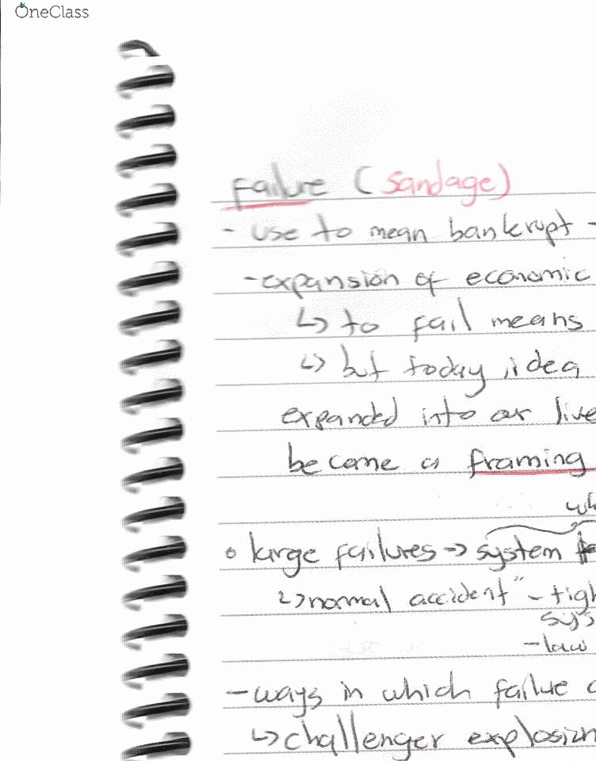 OneClass
failure (Sandage)
- use to mean bankrupt -
- expansion of economic
↳ to fail means
↳ but today, idea
expanded into our live
became a framing
wh
○ large failures → system
↳ normal accident" - tigh
sys
- law
- ways in which failure c
↳ challenger explosion